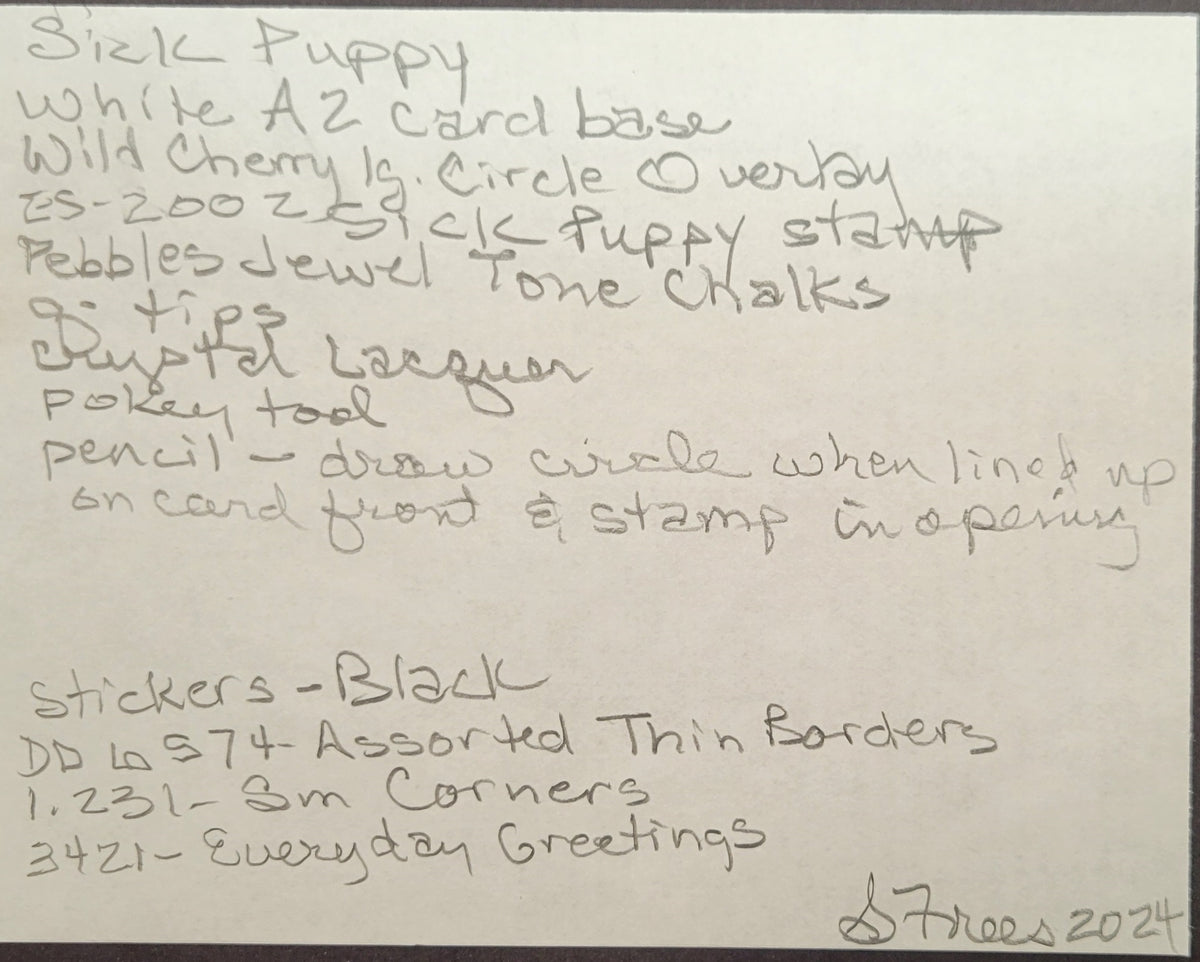 Sick Puppy
White A2 card base
Wild Cherry lg. Circle Overlay
ES-2002 Sick Puppy stamp
Pebbles Jewel Tone Chalks
q. tips
Crystal Lacquer
pokey tool
pencil - draw circle when lined up
on card front & stamp in opening
Stickers - Black
DD 574 - Assorted Thin Borders
1.231 - Sm Corners
3421 - Everyday Greetings
S Frees 2024